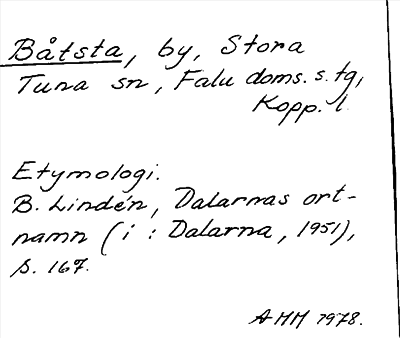 Båtsta, by, Stora
Tuna sn, Falu doms. s. tg,
Kopp. l.
Etymologi.
B. Lindén, Dalarnas ort-
namn (i : Dalarna, 1951),
s. 167.
AMM 1978.